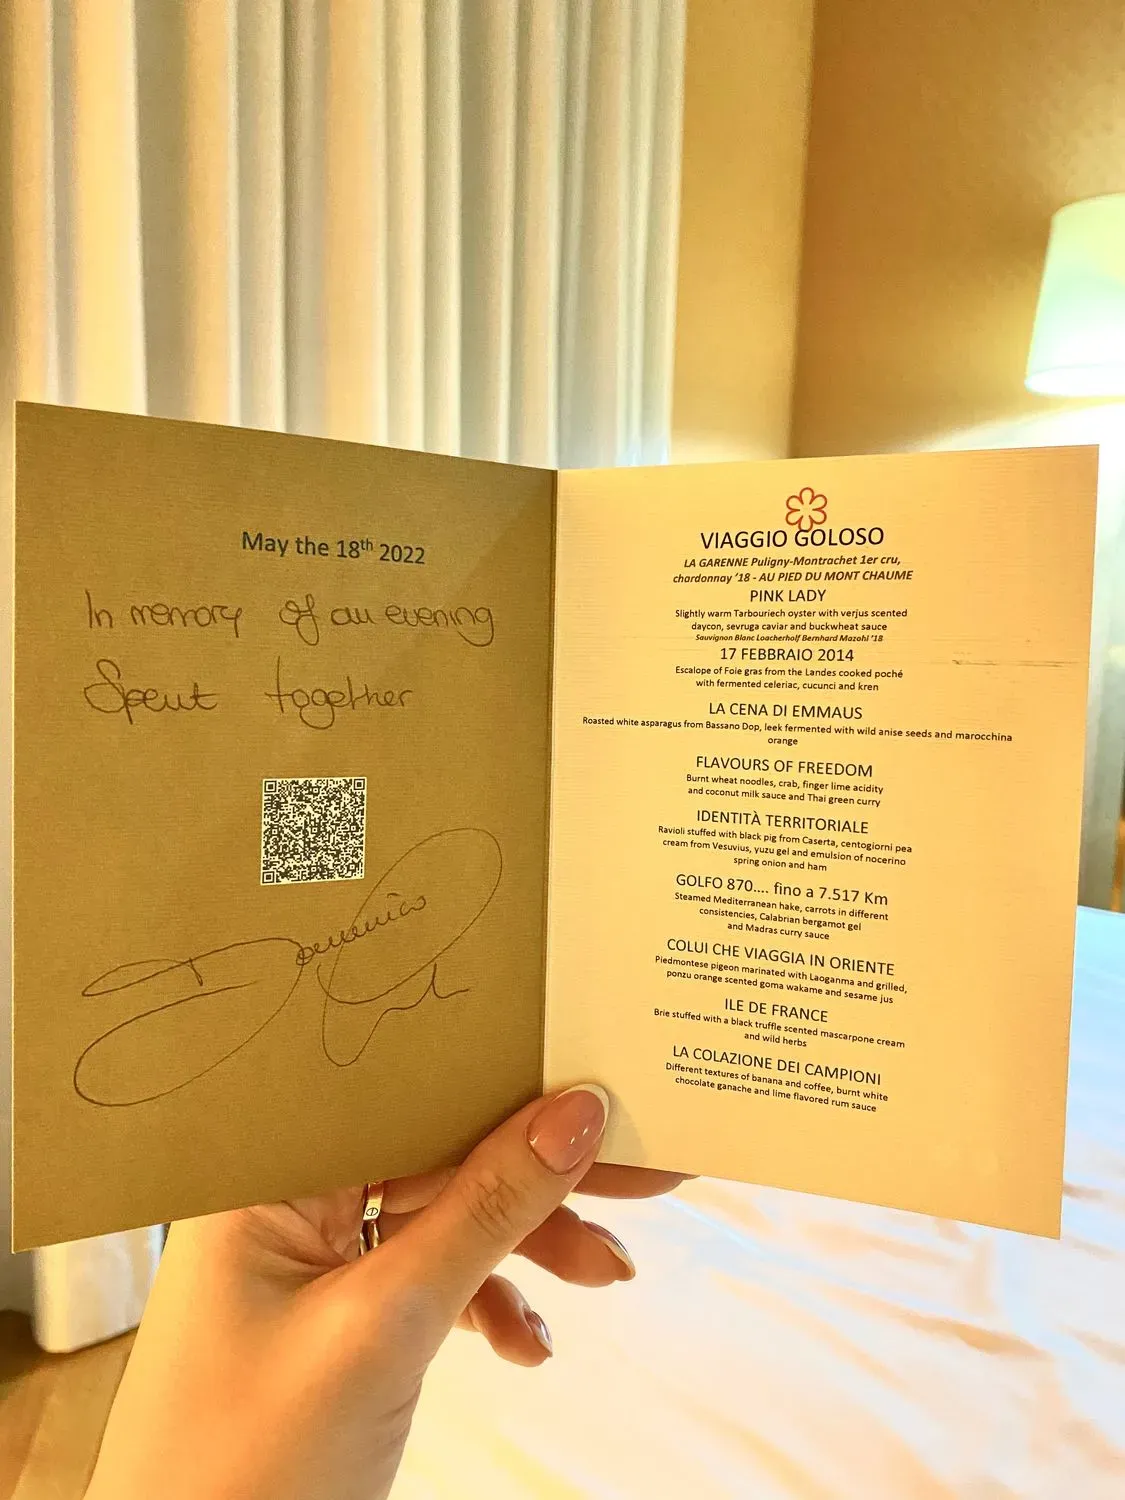 May the 18th 2022
In memory of an evening
Spent together
Domenico
VIAGGIO GOLOSO
LA GARENNE Puligny-Montrachet 1er cru,
chardonnay '18 - AU PIED DU MONT CHAUME
PINK LADY
Slightly warm Tarbouriech oyster with verjus scented
daycon, sevruga caviar and buckwheat sauce
Sauvignon Blanc Loacherholf Bernhard Mazohl '18
17 FEBBRAIO 2014
Escalope of Foie gras from the Landes cooked poché
with fermented celeriac, cucunci and kren
LA CENA DI EMMAUS
Roasted white asparagus from Bassano Dop, leek fermented with wild anise seeds and marocchina
orange
FLAVOURS OF FREEDOM
Burnt wheat noodles, crab, finger lime acidity
and coconut milk sauce and Thai green curry
IDENTITÀ TERRITORIALE
Ravioli stuffed with black pig from Caserta, centogiorni pea
cream from Vesuvius, yuzu gel and emulsion of nocerino
spring onion and ham
GOLFO 870.... fino a 7.517 Km
Steamed Mediterranean hake, carrots in different
consistencies, Calabrian bergamot gel
and Madras curry sauce
COLUI CHE VIAGGIA IN ORIENTE
Piedmontese pigeon marinated with Laoganma and grilled,
ponzu orange scented goma wakame and sesame jus
ILE DE FRANCE
Brie stuffed with a black truffle scented mascarpone cream
and wild herbs
LA COLAZIONE DEI CAMPIONI
Different textures of banana and coffee, burnt white
chocolate ganache and lime flavored rum sauce